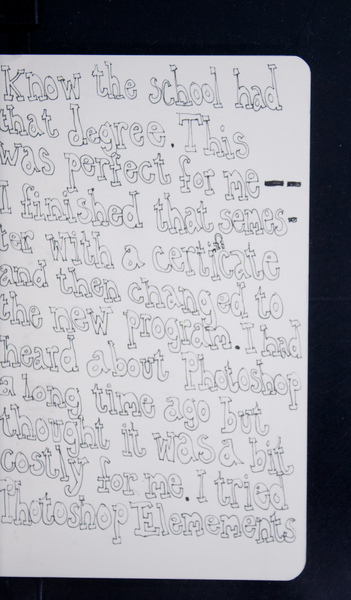 Know the school had
that degree. This
was perfect for me --
I finished that semes-
ter with a certificate
and then changed to
the new program. I had
heard about Photoshop
a long time ago but
thought it was a bit
costly for me. I tried
Photoshop Elemements